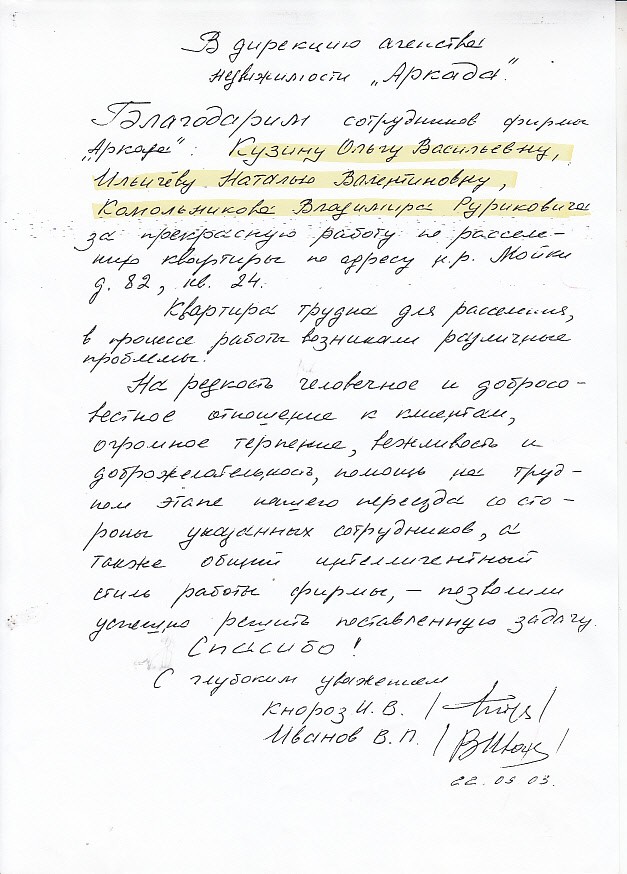 В дирекцию агенства
недвижимости „Аркада".
Благодарим сотрудников фирмы
„Аркада": Кузину Ольгу Васильевну,
Ильичёву Наталью Валентиновну,
Комольникова Владимира Руриковича
за прекрасную работу по расселе-
нию квартиры по адресу н.р. Мойки
д. 82, кв. 24.
Квартира трудна для расселения,
в процессе работы возникали различные
проблемы.
На редкость человечное и добросо-
вестное отношение к клиентам,
огромное терпение, вежливость и
доброжелательность, помощь на труд-
ном этапе нашего переезда со сто-
роны указанных сотрудников, а
также общий интеллигентный
стиль работы фирмы, – позволили
успешно решить поставленную задачу.
Спасибо!
С глубоким уважением
Кнороз И. В. / /
Иванов В. П. / /
22. 05 03.